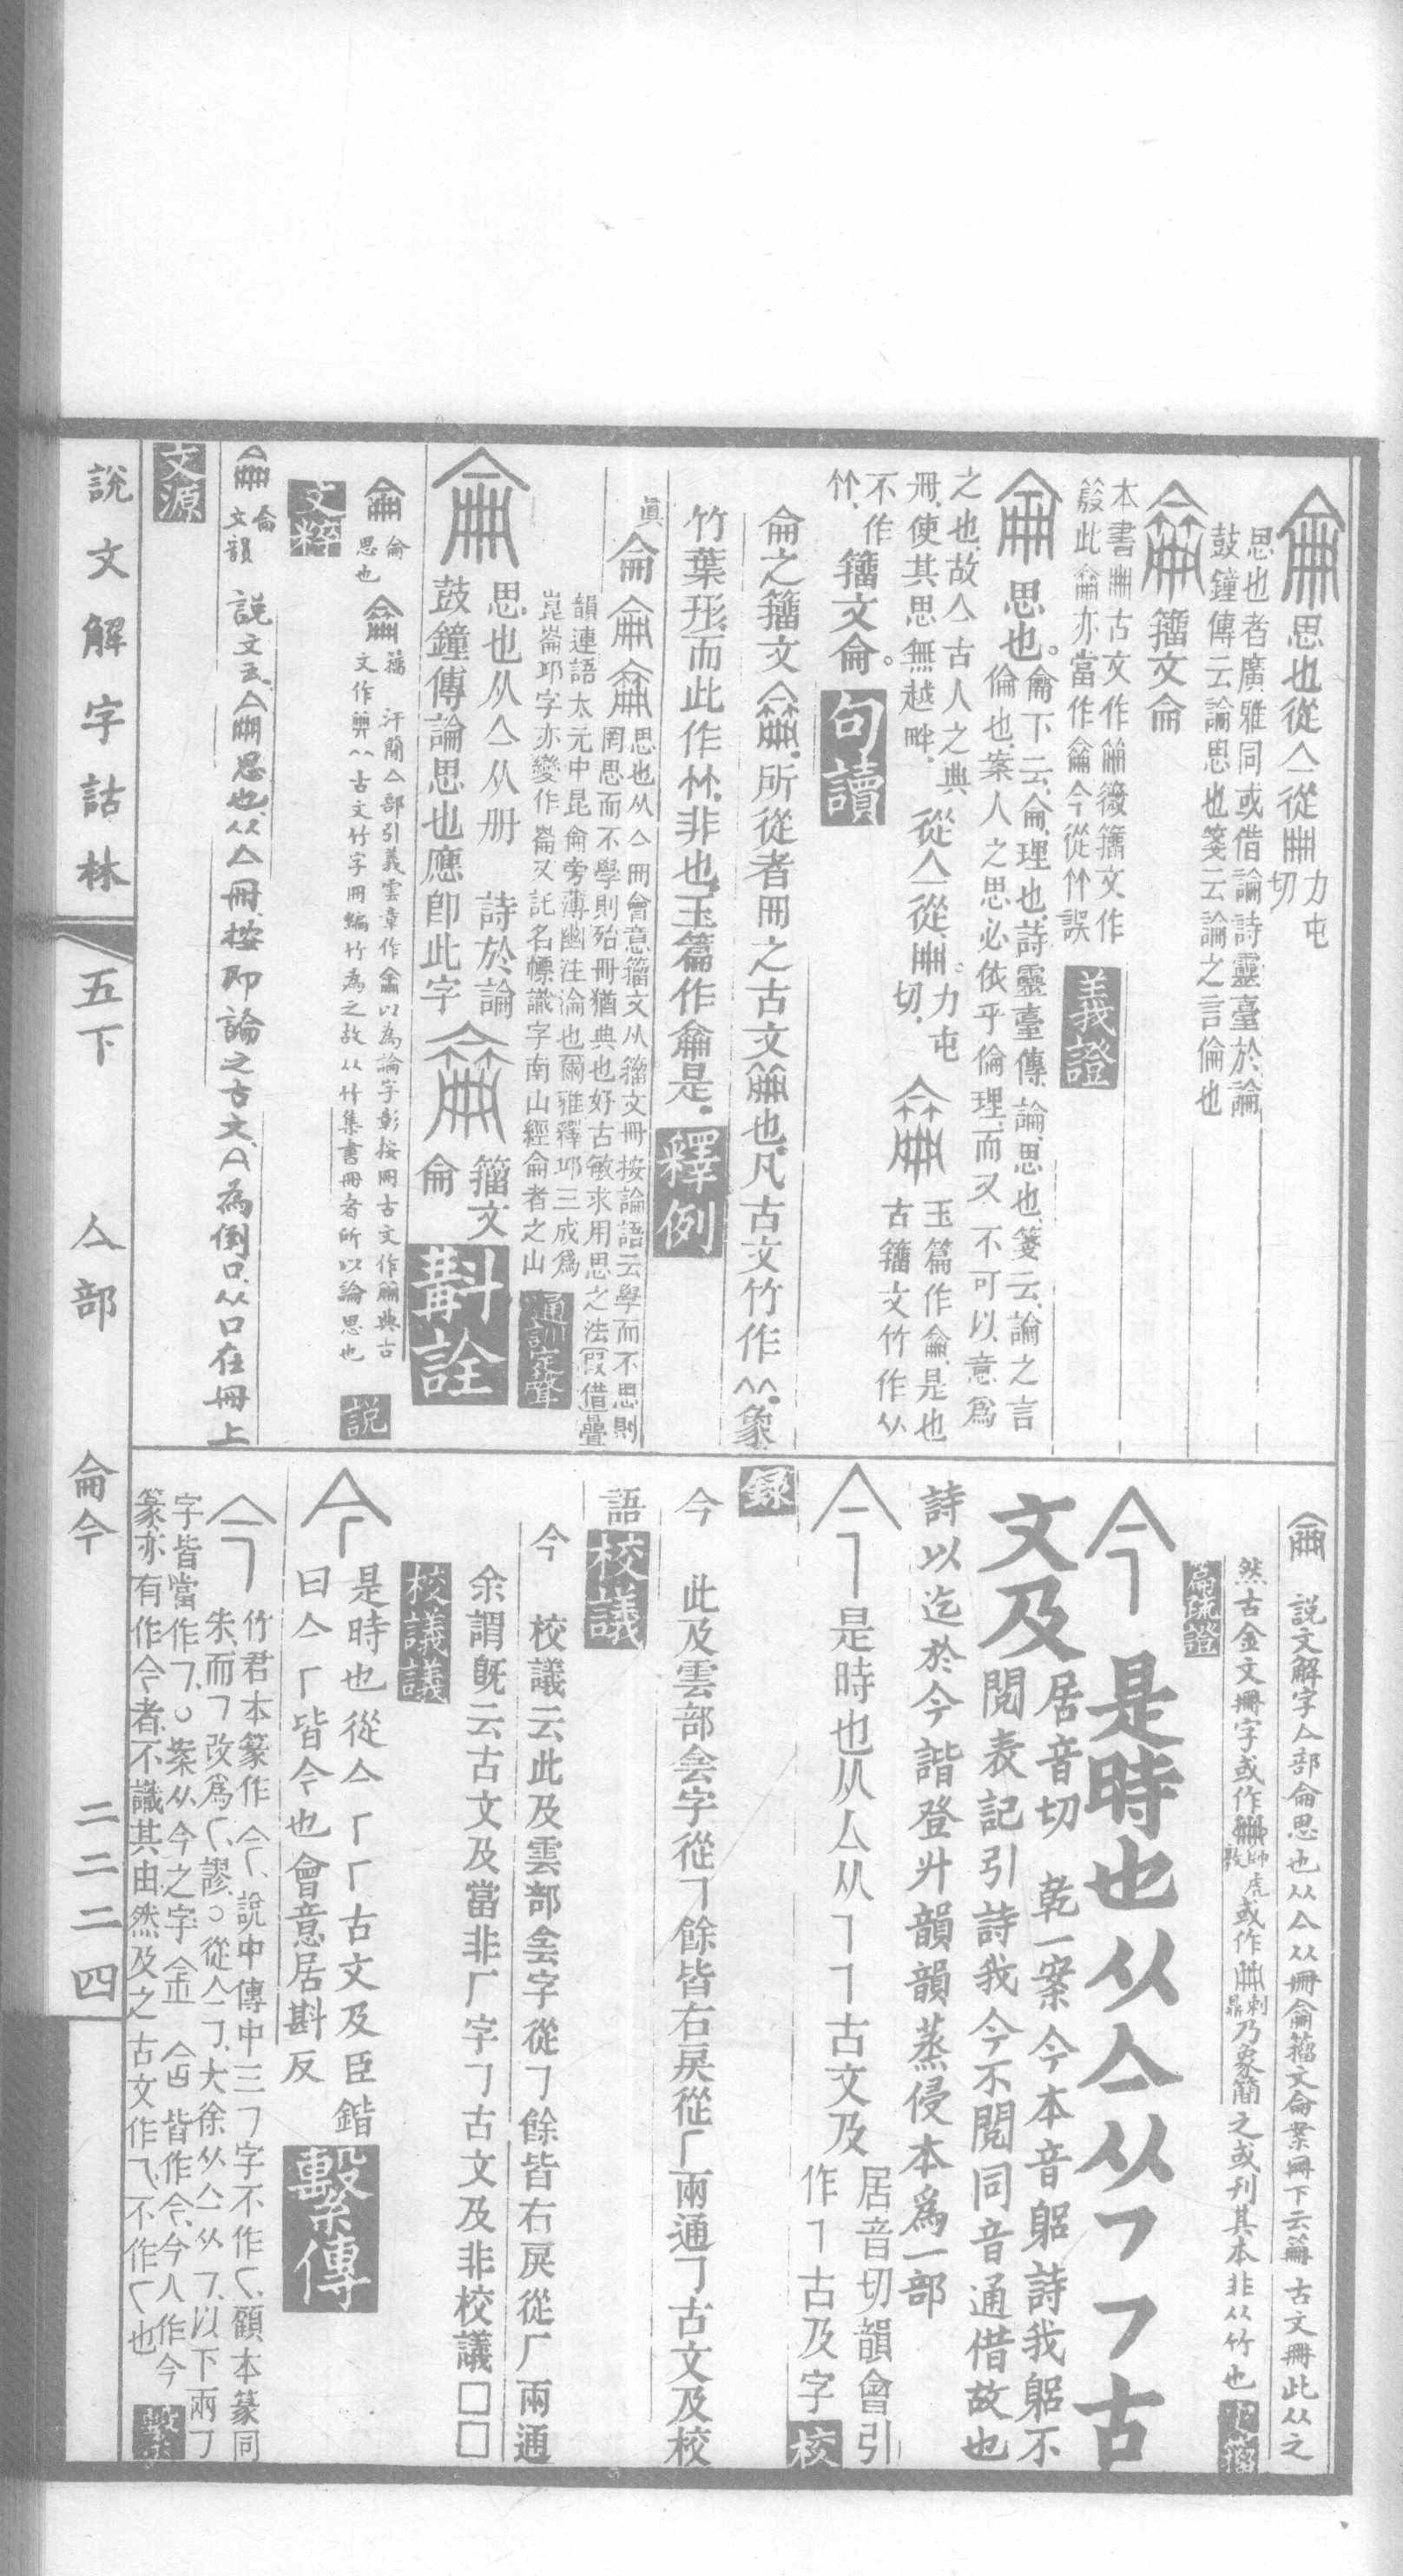 侖思也從亼從冊力屯切
思也者廣雅同或借論詩靈臺於論
鼓鐘傳云論思也箋云論之言倫也
籀文侖
本書冊古文作𥬰籀文作
此侖亦當作今從竹誤
義證
侖思也。侖下云侖理也詩靈臺傳論思也箋云論之言
倫也案人之思必依乎倫理而又不可以意爲
之也故亼古人之典
冊使其思無越畔
從亼從冊。力屯切
玉篇作是也
古籀文竹作
不作
竹
籀文侖。
句讀
侖之籀文所從者冊之古文也凡古文竹作象
竹葉形而此作非也玉篇作是
釋例
眞
侖思也从亼冊會意籀文从籀文冊按論語云學而不思則
罔思而不學則殆冊猶典也好古敏求用思之法假借疊
韻連語太元中昆侖旁薄幽注淪也爾雅釋邱三成爲
崑崙邱字亦變作崙又託名幖識字南山經侖者之山
通訓定聲
侖思也从亼从册 詩於論
鼓鐘傳論思也應即此字
籀文
侖
斠詮
侖
思也
籀
文作
汗簡亼部引義雲章作以為論字彰按冊古文作典古
古文竹字冊編竹為之故从竹集書冊者所以論思也
說
文粹
侖
文韻
說文云侖思也从亼冊按即論之古文亼為倒口从口在冊上
文源
說文解字亼部侖思也从亼从冊籀文侖案冊下云古文冊此从之
然古金文冊字或作師虎敦或作刺鼎乃象簡之或刊其本非从竹也
籀疏證
今是時也从亼从㇇㇇古
文及居音切 乾一案今本音躬詩我躬不
閱表記引詩我今不閱同音通借故也
詩以迄於今諧登升韻韻蒸侵本爲一部
今是時也从亼从㇇㇇古文及居音切韻會引
作㇇古及字
校
錄
今 此及雲部侌字從㇇餘皆右戾從厂兩通㇇古文及校
語
校議
今 校議云此及雲部侌字從㇇餘皆右戾從厂兩通
余謂旣云古文及當非厂字㇇古文及非校議□□
校議議
今是時也從亼厂厂古文及臣鍇
曰亼厂皆今也會意居斟反
繫傳
今竹君本篆作說中傳中三㇇字不作顧本篆同
朱而㇇改爲謬○從亼㇇大徐从亼从㇇以下兩㇇
字皆當作㇇○案从今之字皆作今人作今
篆亦有作者不識其由然及之古文作不作也
說文解字詁林
五下
亼部
侖今
二二二四